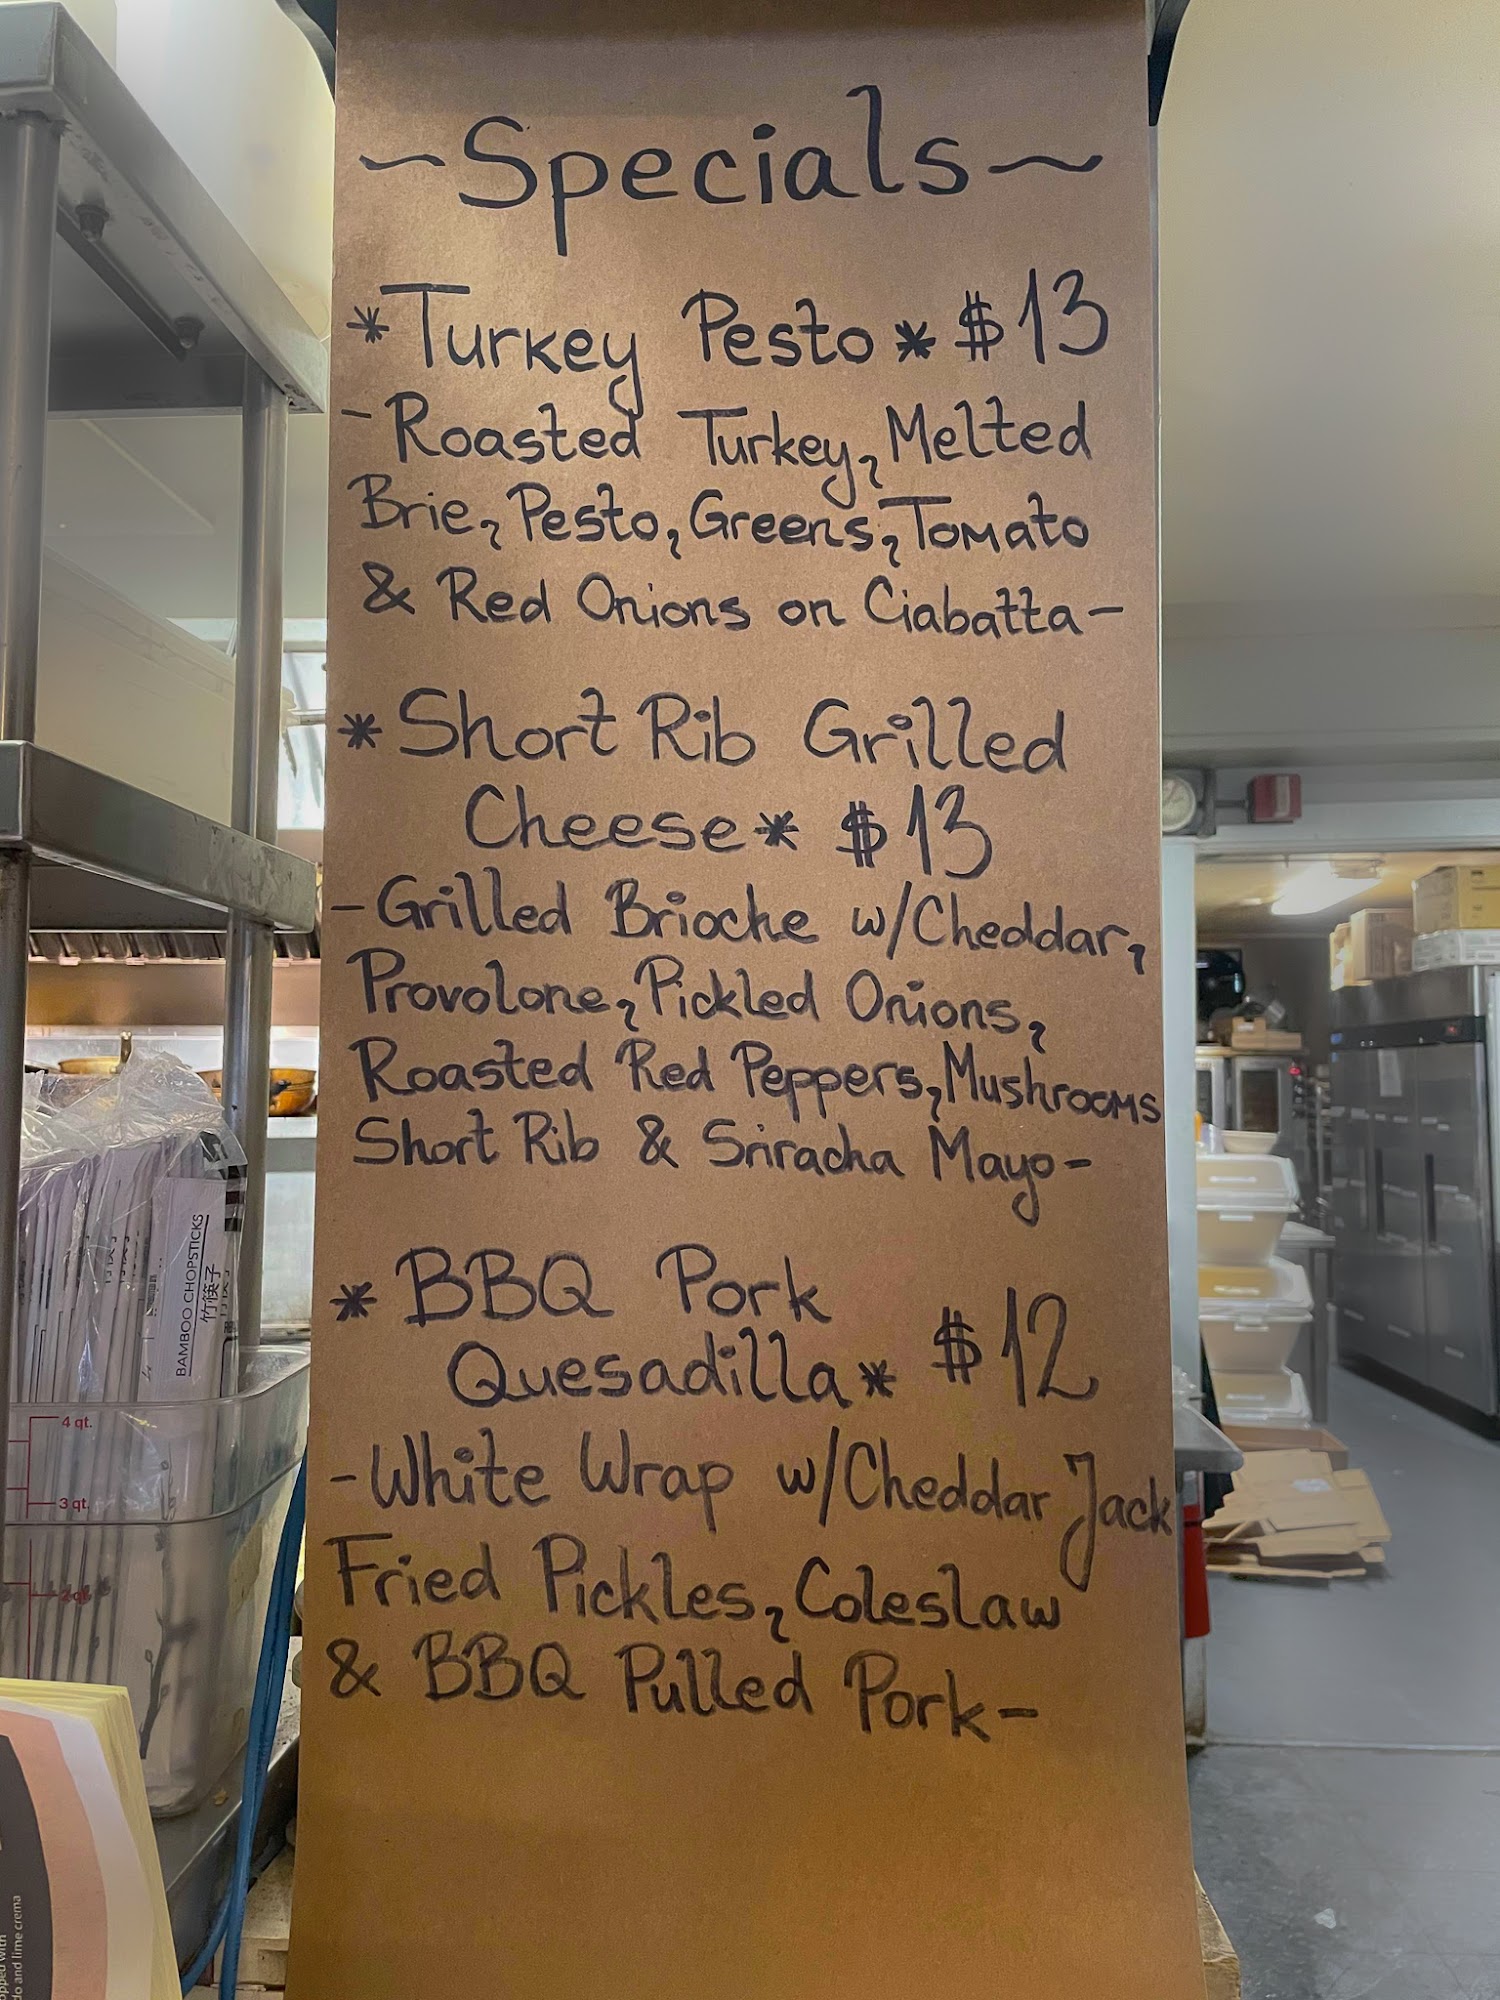 ~Specials~
*Turkey Pesto* $13
-Roasted Turkey, Melted
Brie, Pesto, Greens, Tomato
& Red Onions on Ciabatta-
*Short Rib Grilled
Cheese* $13
-Grilled Brioche w/Cheddar,
Provolone, Pickled Onions,
Roasted Red Peppers, Mushrooms
Short Rib & Sriracha Mayo-
*BBQ Pork
Quesadilla* $12
-White Wrap w/Cheddar Jack
Fried Pickles, Coleslaw
& BBQ Pulled Pork-
BAMBOO CHOPSTICKS
竹筷子
4 qt.
3 qt.
2 qt.
with
and lime crema